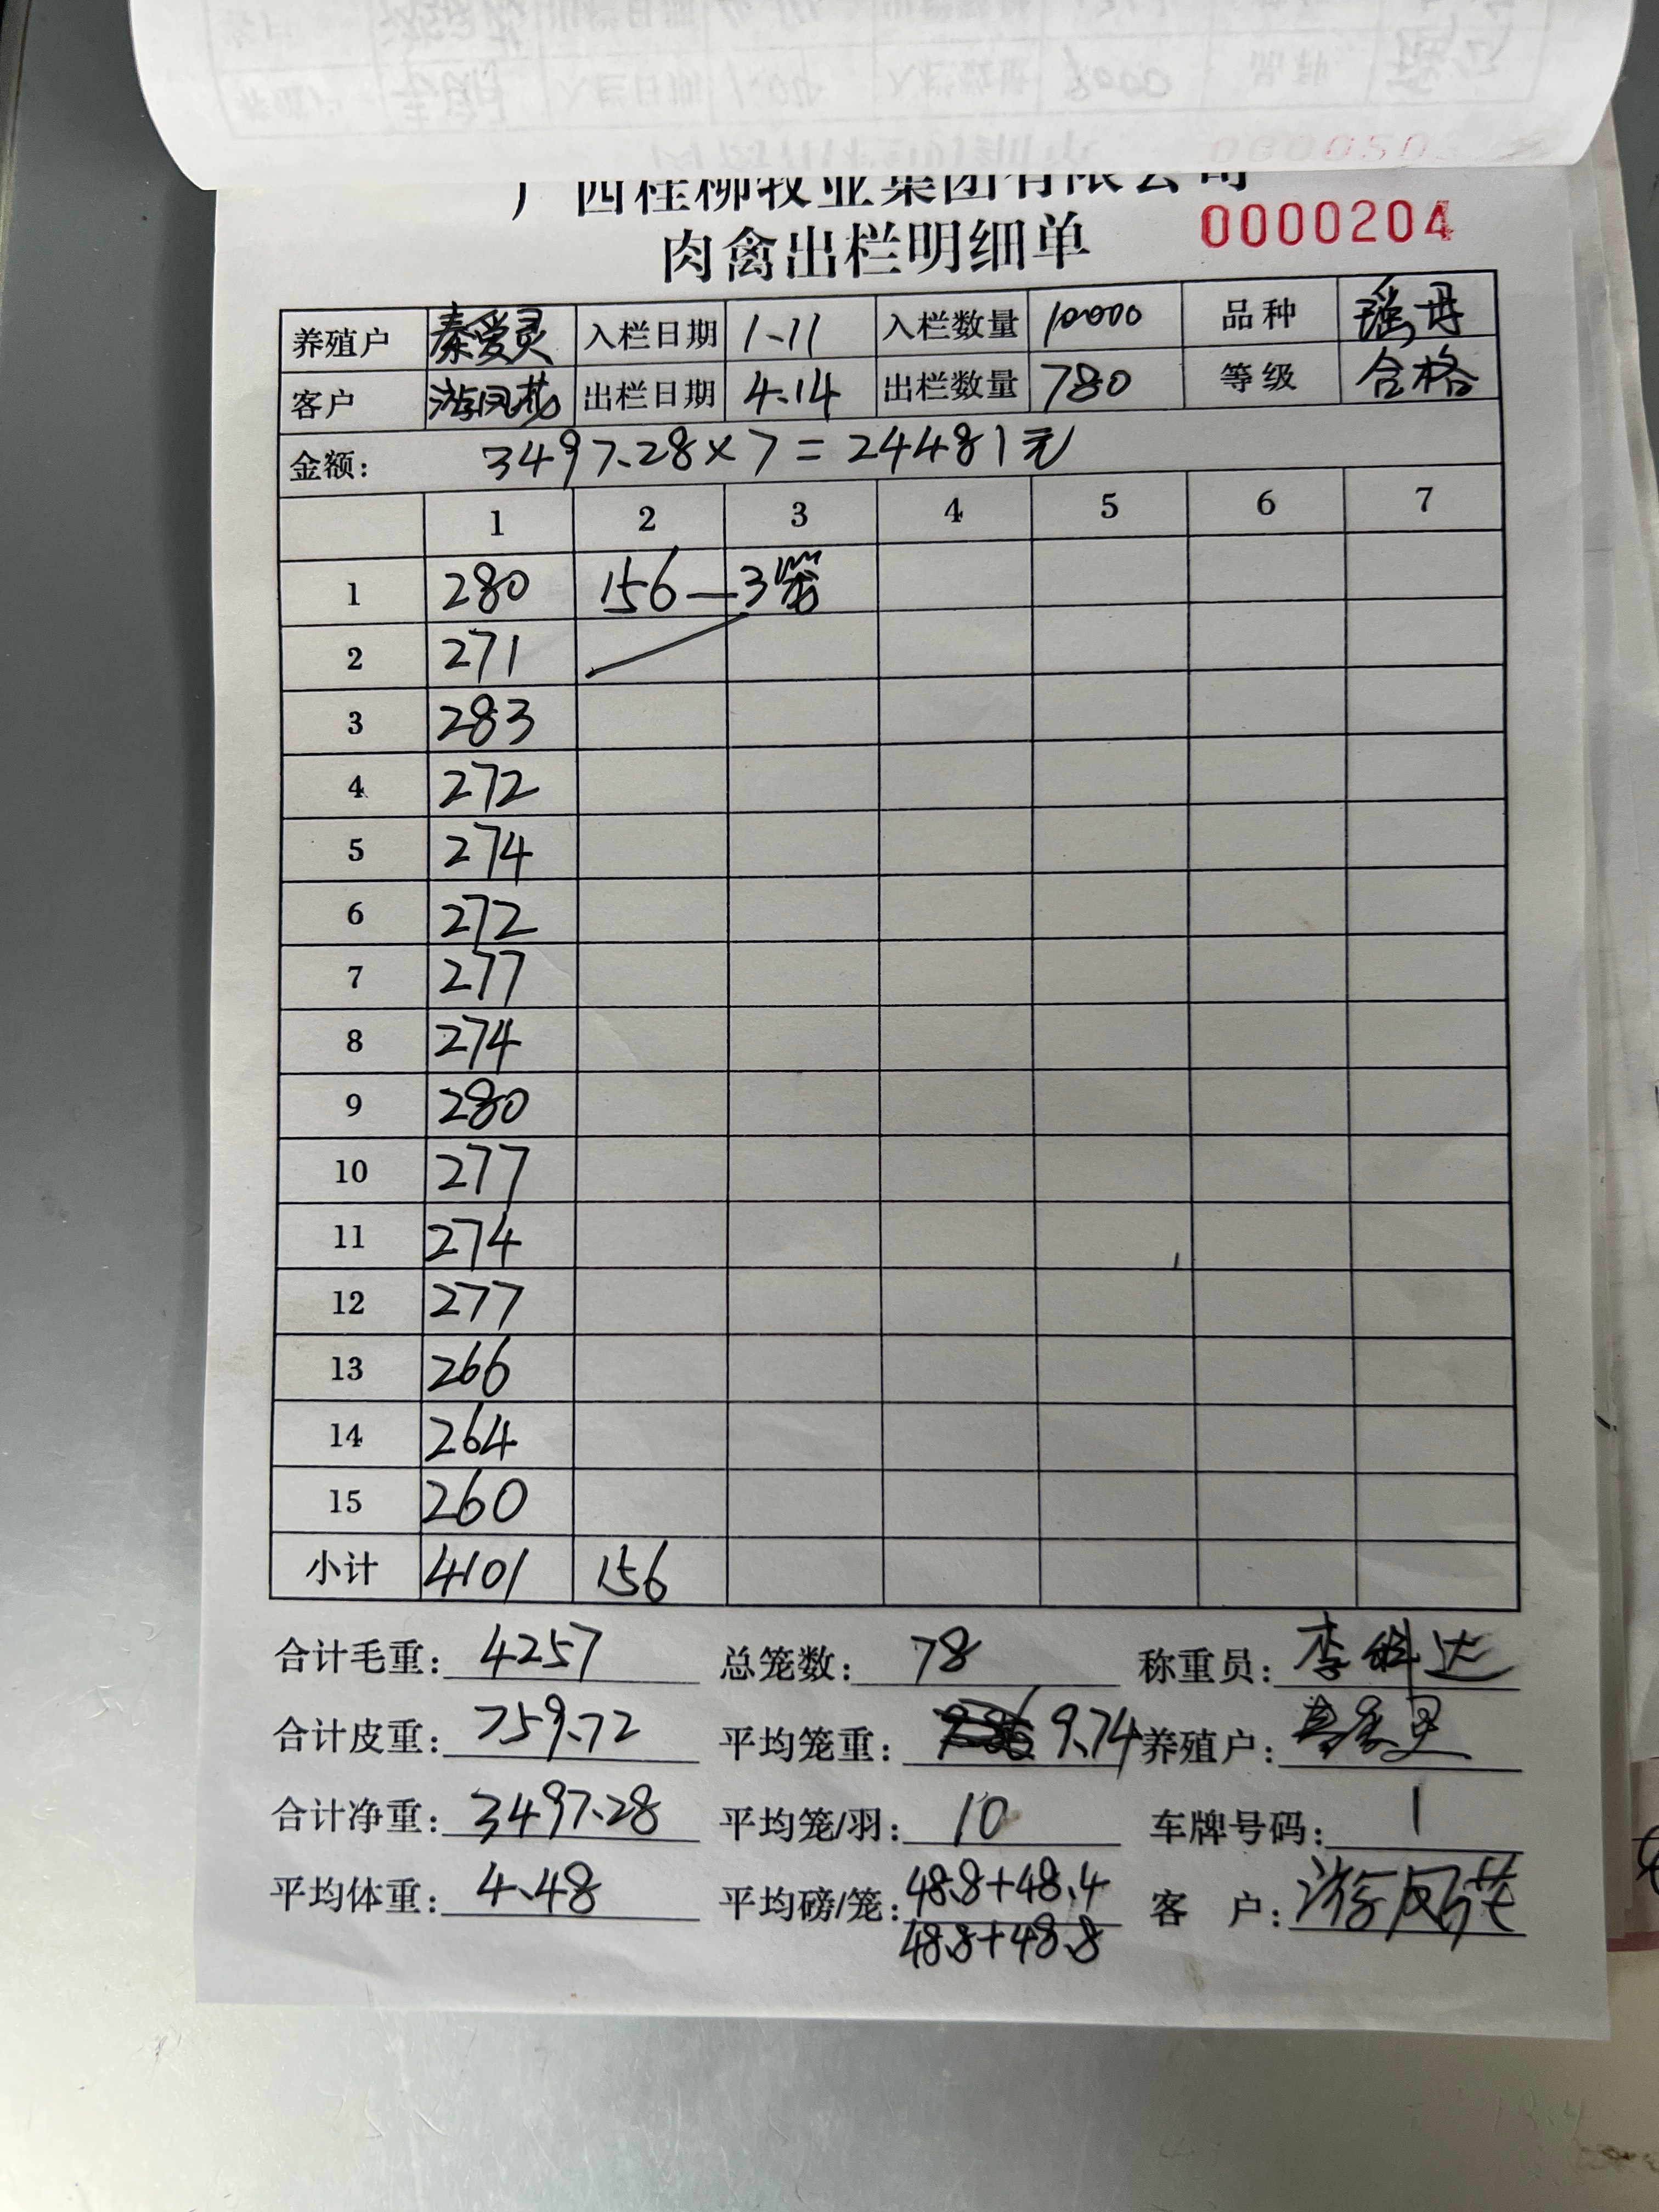 广西桂柳牧业集团有限公司
肉禽出栏明细单 0000204
养殖户 秦爱灵 入栏日期 1.11 入栏数量 10000 品种 瑶丹
客户 游凤花 出栏日期 4.14 出栏数量 780 等级 合格
金额: 3497.28×7=24481元
1 2 3 4 5 6 7
1 280 156—3笼
2 271
3 283
4 272
5 274
6 272
7 277
8 274
9 280
10 277
11 274
12 277
13 266
14 264
15 260
小计 4101 156
合计毛重: 4257 总笼数: 78 称重员: 李科达
合计皮重: 759.72 平均笼重: 9.74 养殖户: 秦爱灵
合计净重: 3497.28 平均笼/羽: 10 车牌号码: 1
平均体重: 4.48 平均磅/笼: 48.8+48.4 客 户: 游凤花
48.8+48.8